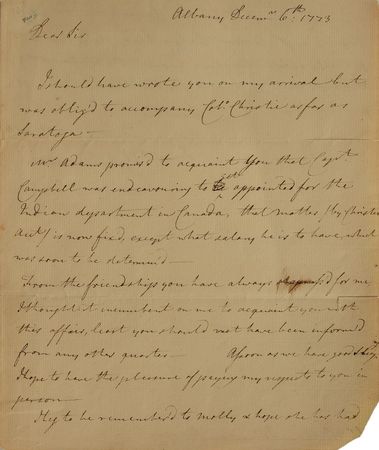 Albany Decemr 6th. 1773
Dear Sir
I should have wrote you on my arrival but
was oblig'd to accompany Colo. Christie as far as
Saratoga —
Mr Adams promis'd to acquaint you that Capt
Campbell was endeavouring to get appointed for the
Indian department in Canada, that matter, (by Christies
Acct.) is now fixed, except what salary he is to have, which
was soon to be determin'd —
From the friendships you have always for me
I thought it incumbent on me to acquaint you with
this affair, least you should not have been informed
from any other quarter — As soon as we have good
I hope to have the pleasure of paying my respects to you in
person —
I beg to be remember'd to Molly & hope she has had